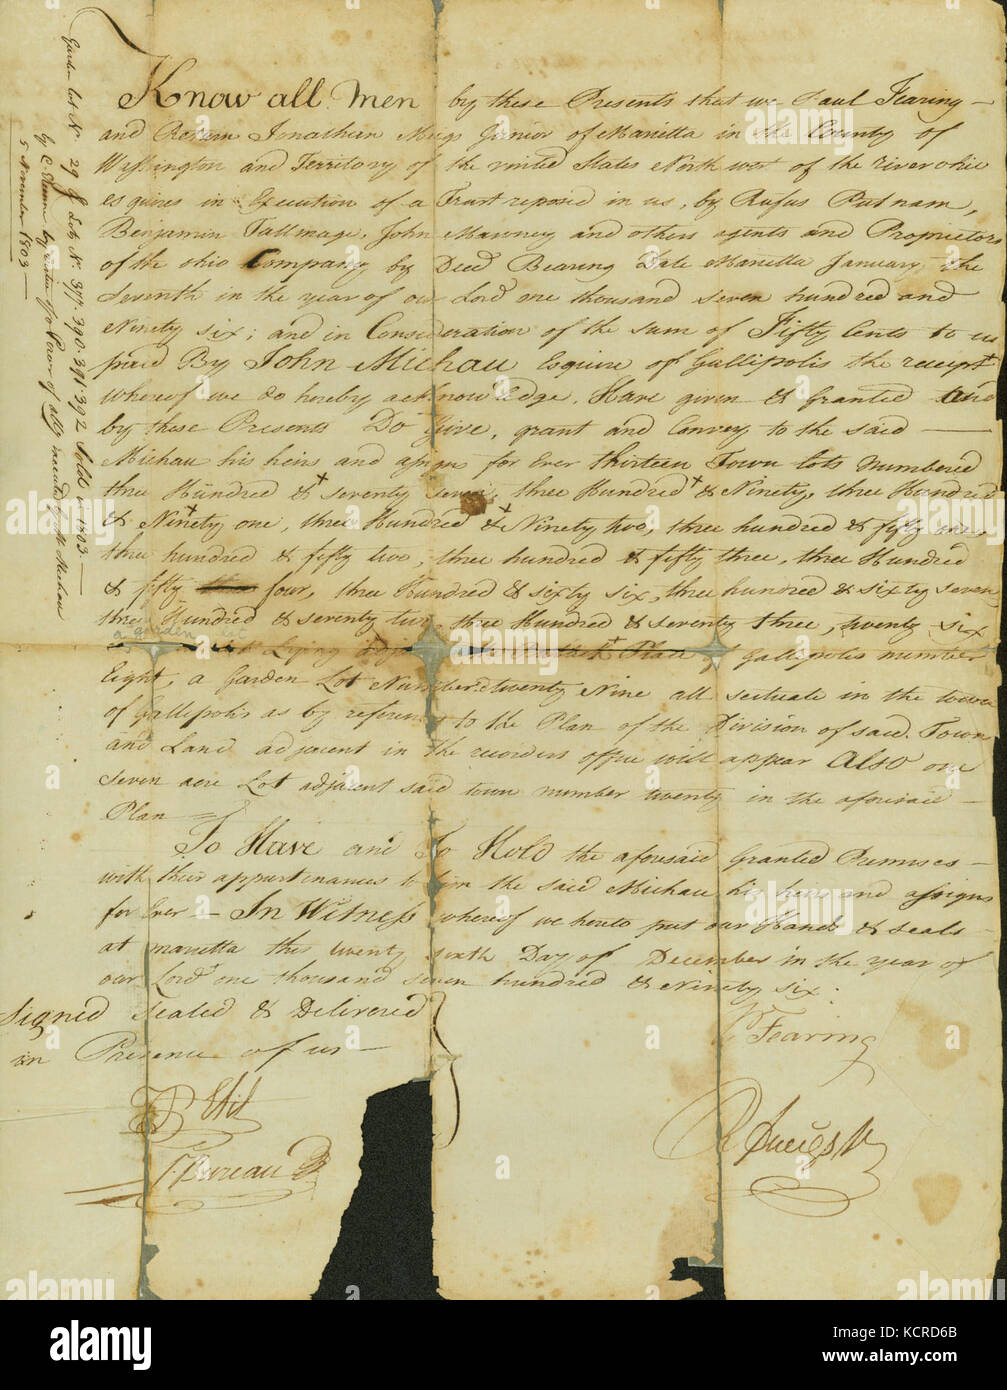 Know all Men by these Presents that we Paul Fearing
and Return Jonathan Meigs Junior of Marietta in the County of
Washington and Territory of the united States North west of the river ohio
esquires in Execution of a Trust reposed in us, by Rufus Putnam,
Benjamin Tallmage, John and others agents and Proprietors
of the ohio Company by Deed Bearing Date Marietta January the
Seventh in the year of our Lord one thousand seven hundred and
Ninety six; and in Consideration of the sum of Fifty Cents to us
paid By John Michau Esquire of Gallipolis the receipt
whereof we do hereby acknowledge, Have given & Granted and
by these Presents Do Give, grant and Convey to the said
Michau his heirs and assigns for Ever thirteen Town lots Numbered
three Hundred & seventy seven, three Hundred & Ninety, three Hundred
& Ninety one, three Hundred & Ninety two, three hundred & fifty one,
three hundred & fifty two, three hundred & fifty three, three Hundred
& fifty four, three Hundred & sixty six, three hundred & sixty seven
three Hundred & seventy two, three Hundred & seventy three, twenty six
a garden lot
Lying Plan of Gallipolis number
Eight, a Garden Lot Number twenty Nine all scituate in the town
of Gallipolis as by reference to the Plan of the Division of said Town
and Land adjacent in the recorders office will appear Also one
Seven acre Lot adjacent said town number twenty in the aforesaid
Plan
To Have and To Hold the aforesaid Granted Premises
with their appurtenances to him the said Michau his heirs and assigns
for Ever — In Witness whereof we hereto put our Hands & seals
at marietta this twenty sixth Day of December in the year of
our Lord one thousand seven hundred & Ninety six.
Signed Sealed & Delivered
in Presence of us
P Fearing
Petit
R J Meigs Jr
J. P. Bureau
Garden lot No. 29 & Lots No. 377. 390. 391. 392 Sold in 1803
by C by virtue of a Power of atty
5 November 1803
alamy
Image ID: KCRD6B
www.alamy.com